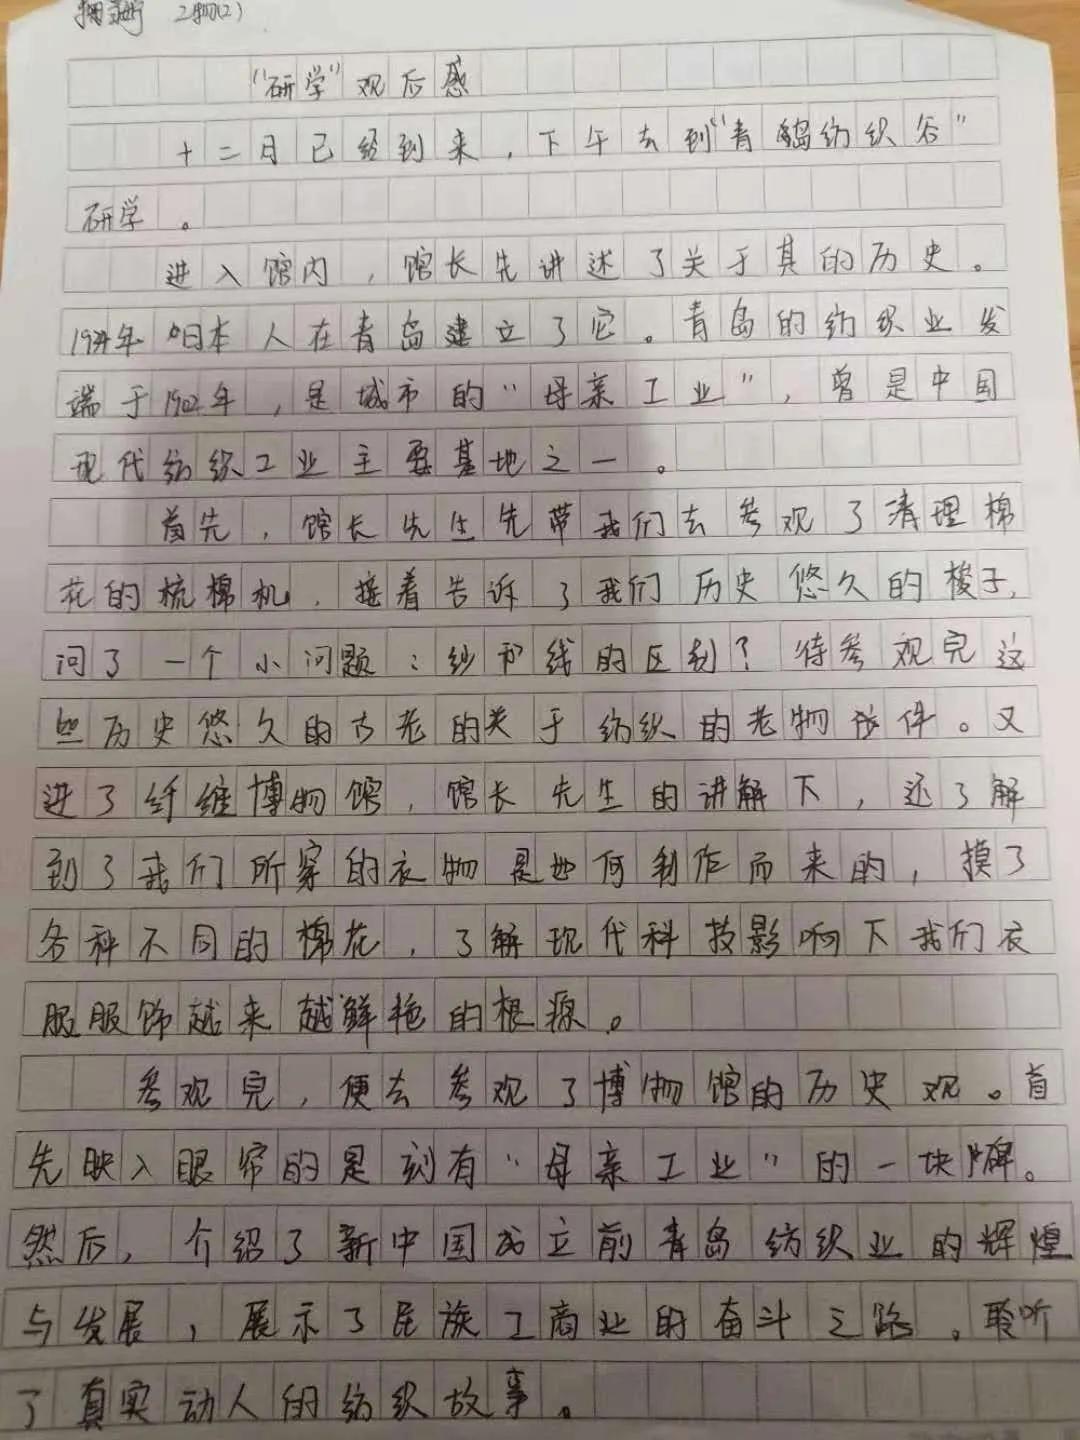 2物(2)
“研学”观后感
十二月已经到来，下午去到“青岛纺织谷”
研学。
进入馆内，馆长先讲述了关于其的历史。
年日本人在青岛建立了它。青岛的纺织业发
端于1902年，是城市的“母亲工业”，曾是中国
现代纺织工业主要基地之一。
首先，馆长先生先带我们去参观了清理棉
花的梳棉机，接着告诉了我们历史悠久的梭子，
问了一个小问题：纱和线的区别？待参观完这
些历史悠久的古老的关于纺织的老物件。又
进了纤维博物馆，馆长先生的讲解下，还了解
到了我们所穿的衣物是如何制作而来的，摸了
各种不同的棉花，了解现代科技影响下我们衣
服服饰越来越鲜艳的根源。
参观完，便去参观了博物馆的历史观。首
先映入眼帘的是刻有“母亲工业”的一块牌。
然后，介绍了新中国成立前青岛纺织业的辉煌
与发展，展示了民族工商业的奋斗之路。聆听
了真实动人的纺织故事。